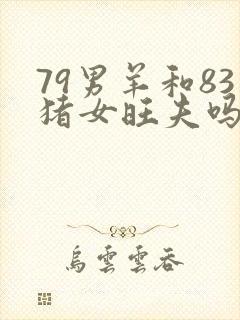 79男羊和83
猪女旺夫吗
烏雲雲吞